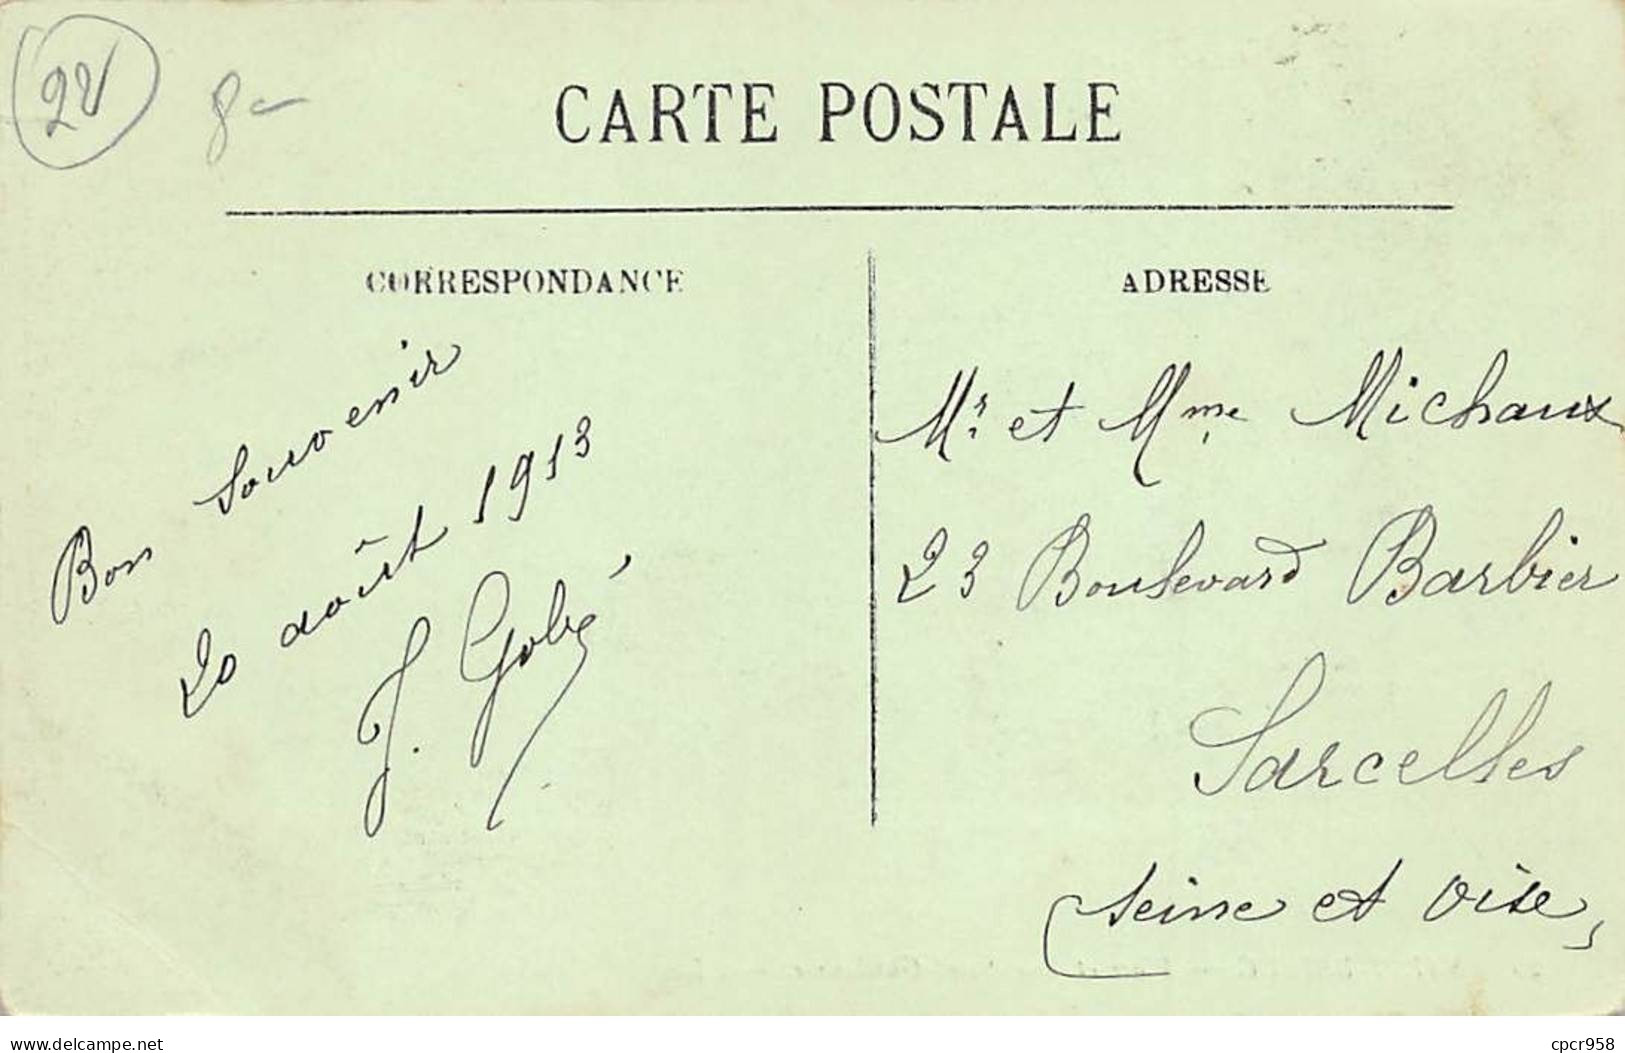 22
8-
CARTE POSTALE
CORRESPONDANCE
Bon Souvenir
20 août 1913
J. Gobé
ADRESSE
Mr. et Mme Michaux
23 Boulevard Barbier
Sarcelles
Seine et Oise
www.delcampe.net
cpcr958